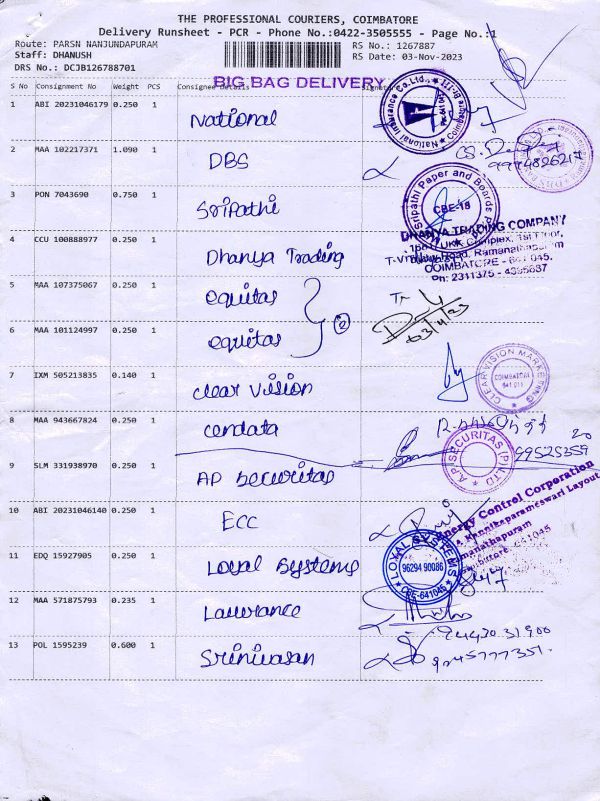 THE PROFESSIONAL COURIERS, COIMBATORE
Delivery Runsheet - PCR - Phone No.:0422-3505555 - Page No.:1
Route: PARSN NANJUNDAPURAM
RS No.: 1267887
Staff: DHANUSH
RS Date: 03-Nov-2023
DRS No.: DCJB126788701
BIG BAG DELIVERY
S No Consignment No Weight PCS Consignee Details
1 ABI 20231046179 0.250 1 National
National Insurance Co.Ltd.,
2 MAA 102217371 1.090 1 DBS
3 PON 7043690 0.750 1 Sripathi
Sripathi Paper and Boards
CBE-18
4 CCU 100888977 0.250 1 Dhanya Trading
DHANYA TRADING COMPANY
Complex, 1st Floor,
Road, Ramanathapuram
COIMBATORE - 641 045.
Ph: 2311375 - 4395837
5 MAA 107375067 0.250 1 equitas
6 MAA 101124997 0.250 1 equitas
2
03/11/23
7 IXM 505213835 0.140 1 Clear Vision
CLEAR VISION MARKETING
COIMBATORE
641 011
8 MAA 943667824 0.250 1 Cendata
9952535920
9 SLM 331938970 0.250 1 AP Securitas
A.P. SECURITAS (P) LTD
10 ABI 20231046140 0.250 1 ECC
Energy Control Corporation
Kannikaparameswari Layout
Ramanathapuram
Coimbatore 641045
11 EDQ 15927905 0.250 1 Loyal Systems
LOYAL SYSTEMS
96294 90086
CBE-641045
12 MAA 571875793 0.235 1 Lawrance
94430.31900
13 POL 1595239 0.600 1 Srinivasan
9245777351.